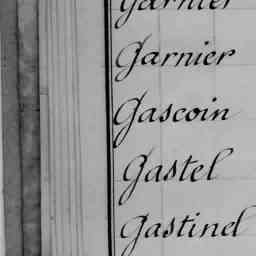 Garnier
Garnier
Gascoin
Gastel
Gastinel